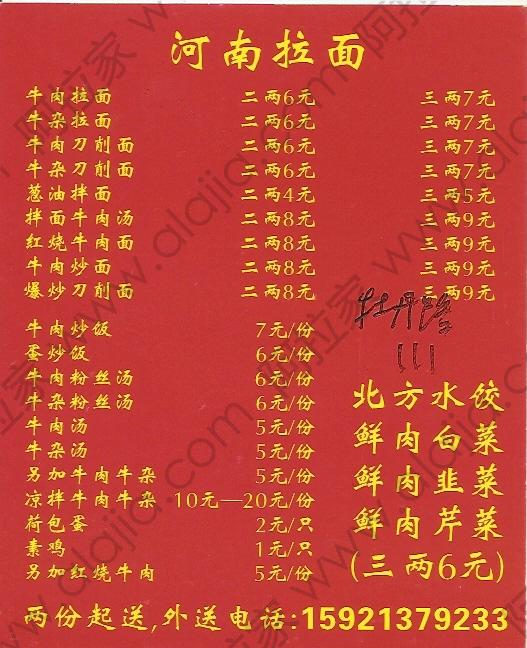 河南拉面
牛肉拉面 二两6元 三两7元
牛杂拉面 二两6元 三两7元
牛肉刀削面 二两6元 三两7元
牛杂刀削面 二两6元 三两7元
葱油拌面 二两4元 三两5元
拌面牛肉汤 二两8元 三两9元
红烧牛肉面 二两8元 三两9元
牛肉炒面 二两8元 三两9元
爆炒刀削面 二两8元 三两9元
牛肉炒饭 7元/份
蛋炒饭 6元/份
牛肉粉丝汤 6元/份
牛杂粉丝汤 6元/份
牛肉汤 5元/份
牛杂汤 5元/份
另加牛肉牛杂 5元/份
凉拌牛肉牛杂 10元—20元/份
荷包蛋 2元/只
素鸡 1元/只
另加红烧牛肉 5元/份
牡丹路
111
北方水饺
鲜肉白菜
鲜肉韭菜
鲜肉芹菜
(三两6元)
两份起送,外送电话:15921379233
阿拉家 www.alajia.com